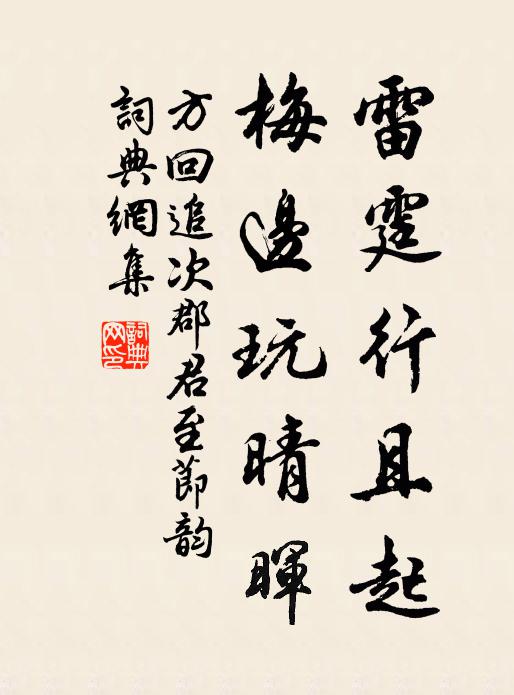 雷霆行且起
梅邊玩晴暉
方回追次郡君至節韵
詞典網集
詞典
网印